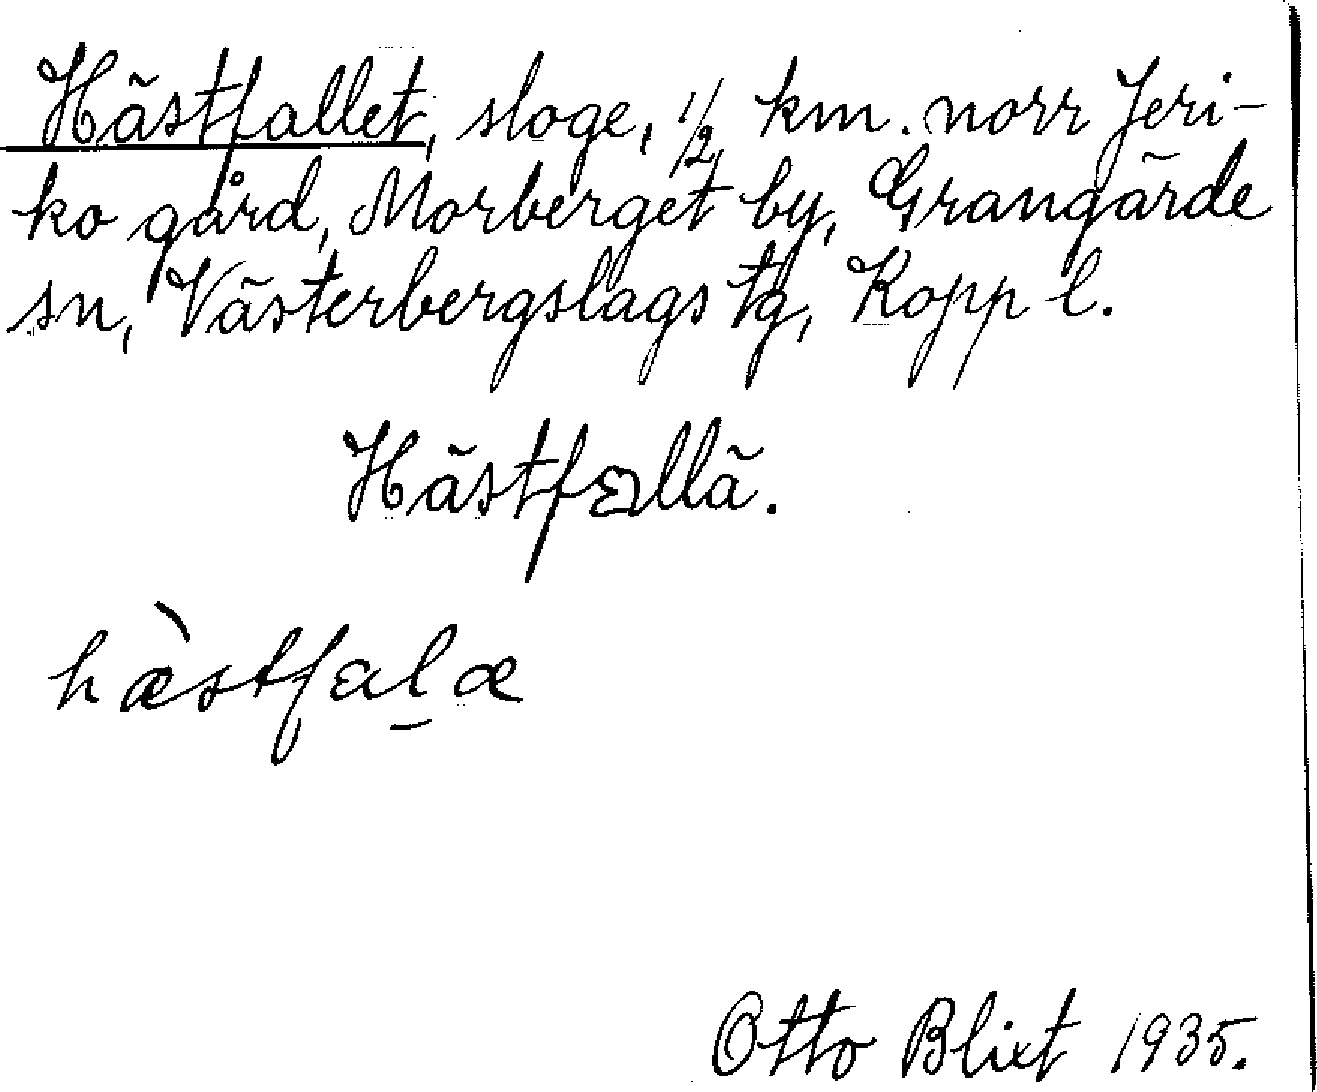 Hästfallet, sloge, 1/2 km. norr Jeri-
ko gård, Morberget by, Grangärde
sn, Västerbergslags tg, Kopp l.
Hästfallä.
hæ̀stfaḻæ
Otto Blixt 1935.